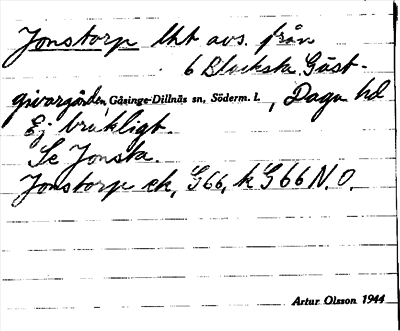 Jonstorp lht avs. från
6 Blacksta Gäst-
givargården, Gåsinge-Dillnäs sn, Söderm. l., Daga hd
Ej brukligt.
Se Jonsta.
Jonstorp ek, G66, k G66 N.O.
Artur Olsson 1944